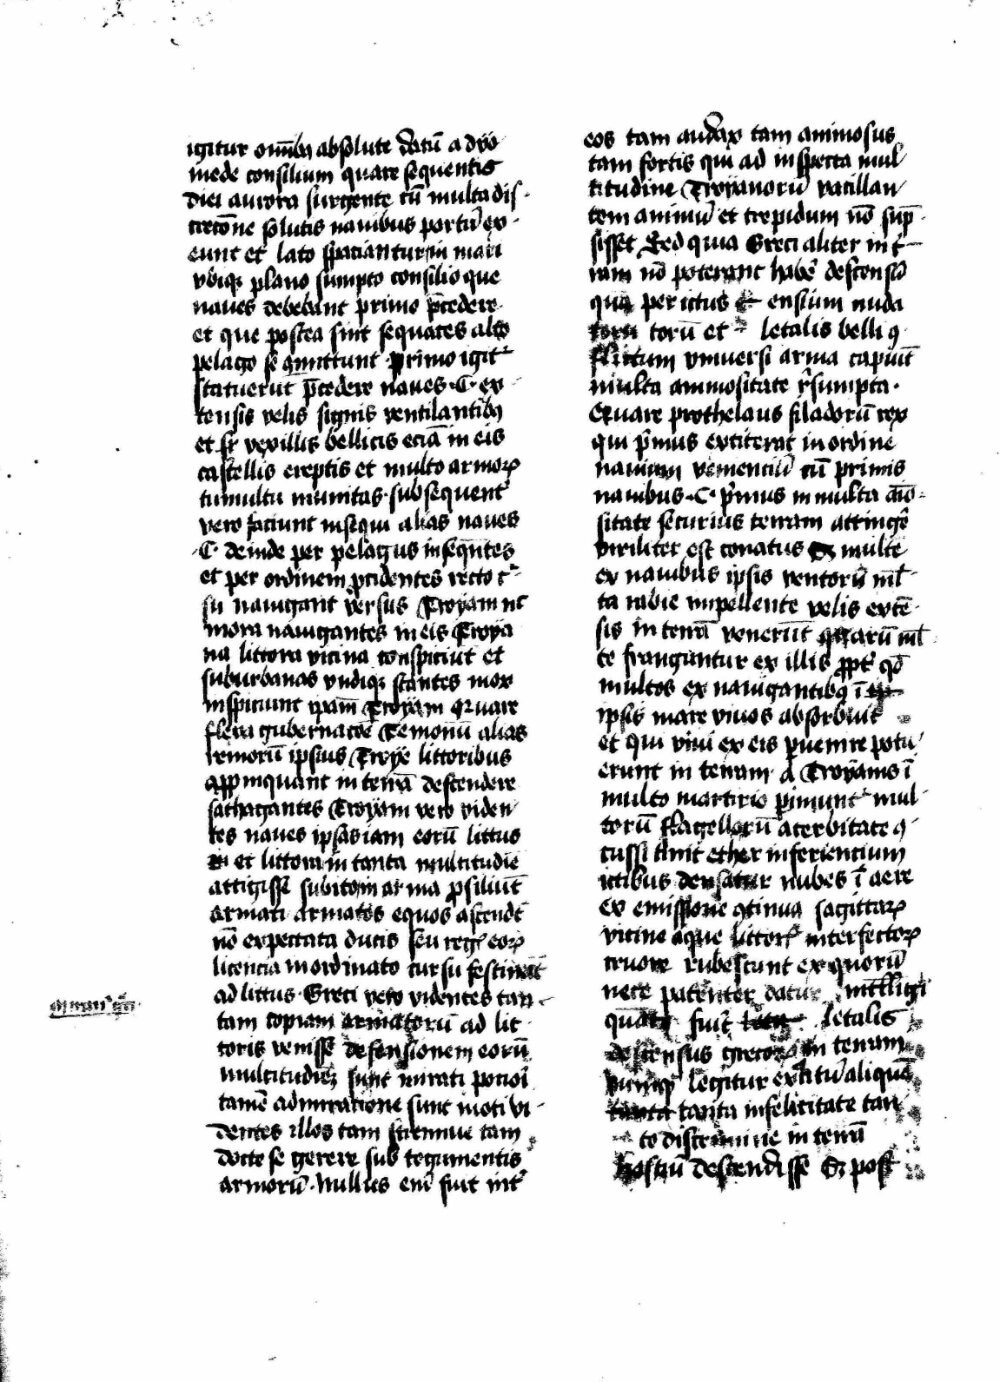 igitur omībꝫ absolute datū a dyo
mede consilium quare sequentis
diei aurora surgente cū multa dis
cretōne solutis navibus portū ex
eunt et lato spaciantur in mari
vbiqꝫ plano sumpto consilio que
naves debebant primo p̄cedere
et que postea sint sequētes alto
pelago se ꝯmittunt primo igit᷑
statuerūt p̄cedere naves ·C· ex
tensis velis signis ventilantibꝫ
et vexillis bellicis eciā in eis
castellis ereptis et multo armoꝝ
tumultu munitas · subsequent᷑
vero faciunt insequi alias naves
·C· deinde per pelagus inseqūtes
et per ordinem p̄cidentes recto c᷑
su navigant versus Troyam nc̄
mora navigantes in eis Troya
na littora vicina conspiciūt et
suburbanas vndiqꝫ stantes mox
inspiciunt ipam̄ Troyam Quare
flexa gubernatōe temonū alias
remorū ipsius Troye littoribus
appinquant in terrā descendere
sathagantes Troyam vero viden
tes naves ipsas iam eorū littus
et littora in tanta multitudie
attigisse subitom arma ꝓsiliūt
armati armatos equos ascendūt
nō expectata ducis seu reg᷑ eoꝝ
licencia inordinato cursu festināt
ad littus · Greci vero videntes tan
tam copiam armatorū ad lit
toris venisse defensionem eorū
multitudiēꝫ sunt mirati pocioi᷑
tamē admiratione sunt moti vi
dentes illos tam strennue tam
docte se gerere sub tegumentis
armorū · Nullus eni᷑ fuit int᷑
eos tam audax tam animosus
tam fortis qui ad inspecta mul
titudine Troyanorū vacillan
tem animū et trepidum nō sup̄
sisset Sed quia Greci aliter in t᷑
ram nō poterant habē descensū
quā per ictus ensium nuda
torū et letalis belli ꝯ
flictum vniversi arma capiūt
multa animositate r᷑sumpta ·
Quare prothelaus filadorū rex
qui p᷑mus extiterat in ordine
navium veniencium cū primis
navibus ·C· p᷑mus in multa aīo
sitate securius terram attingē
viriliter est conatus Sꝫ multe
ex navibus ipsis ventorū ml̄
ta rabie impellente velis extē
sis in terrā venerūt quarū ml̄
te franguntur ex illis ꝓpt᷑ qd̄
multos ex navigantibꝫ ī
ipsis mare vivos absorbuit
et qui vivi ex eis p̄venire potu
erunt in terram a Troyanis ī
multo martirio p̄imunt᷑ mul
torū flagellorū acerbitate ꝯ
cussi ether inferiencium
ictibus densatur nubes ī aere
ex emissione ꝯtinua sagittaꝝ
vicine aque littoꝝ interfectoꝝ
cruore rubescunt ex quorū
nece patenter datur intelligi
quam fuit letalis
descensus grecorū in terram
nunqꝫ legitur extitū aliquē
tanta infelicitate tan
to discrimine in terrā
hostiū descendisse Sꝫ post